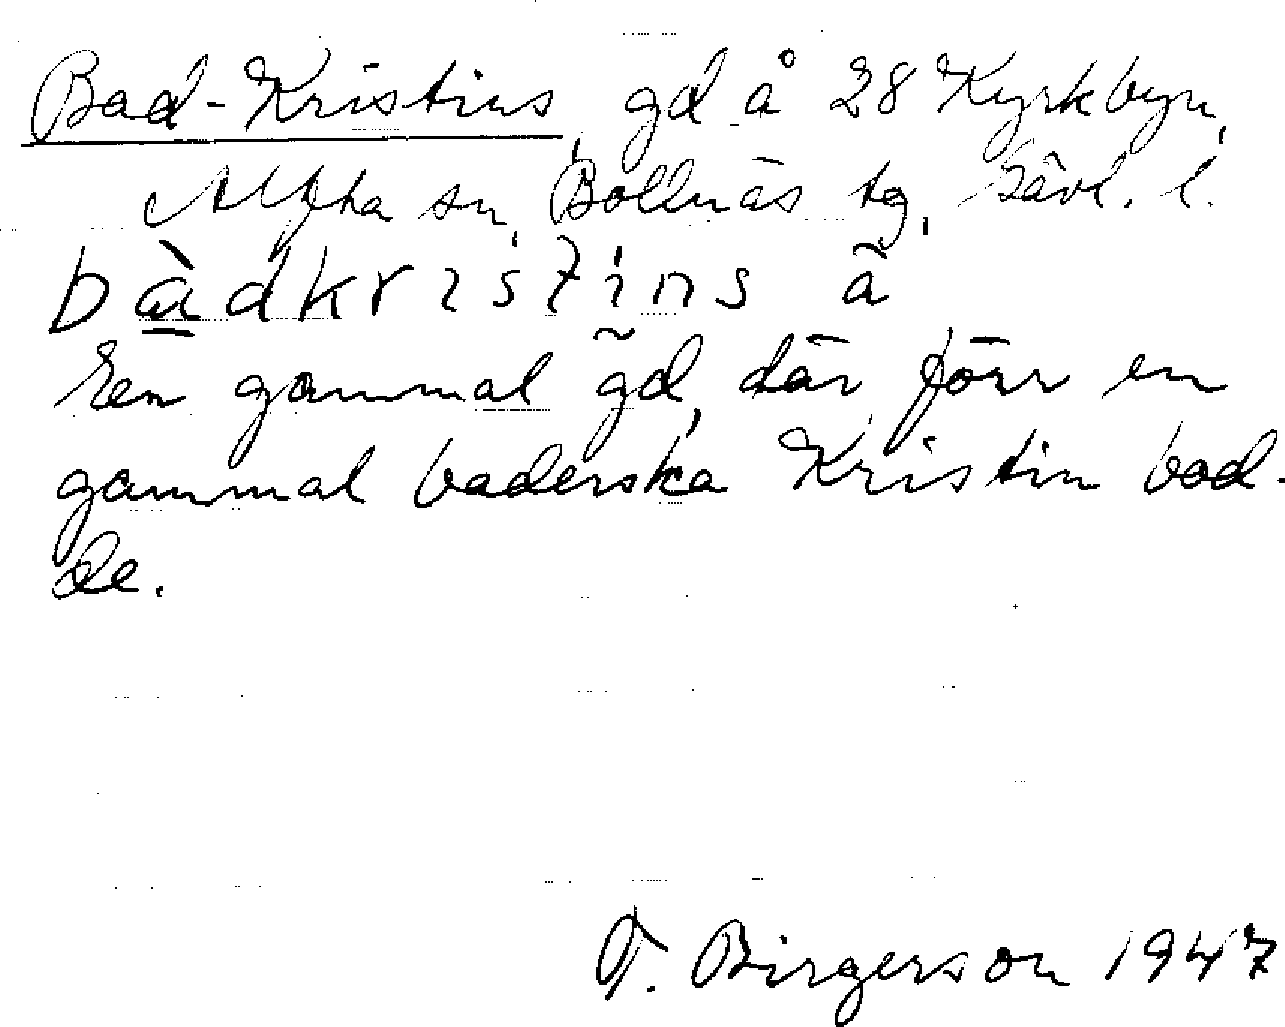 Bad-Kristins, gd å 28 Kyrkbyn,
Alfta sn, Bollnäs tg, Gävl. l.
bàdkristins ã
Een gammal gd, där förr en
gammal baderska Kristin bod-
de.
T. Birgerson 1947